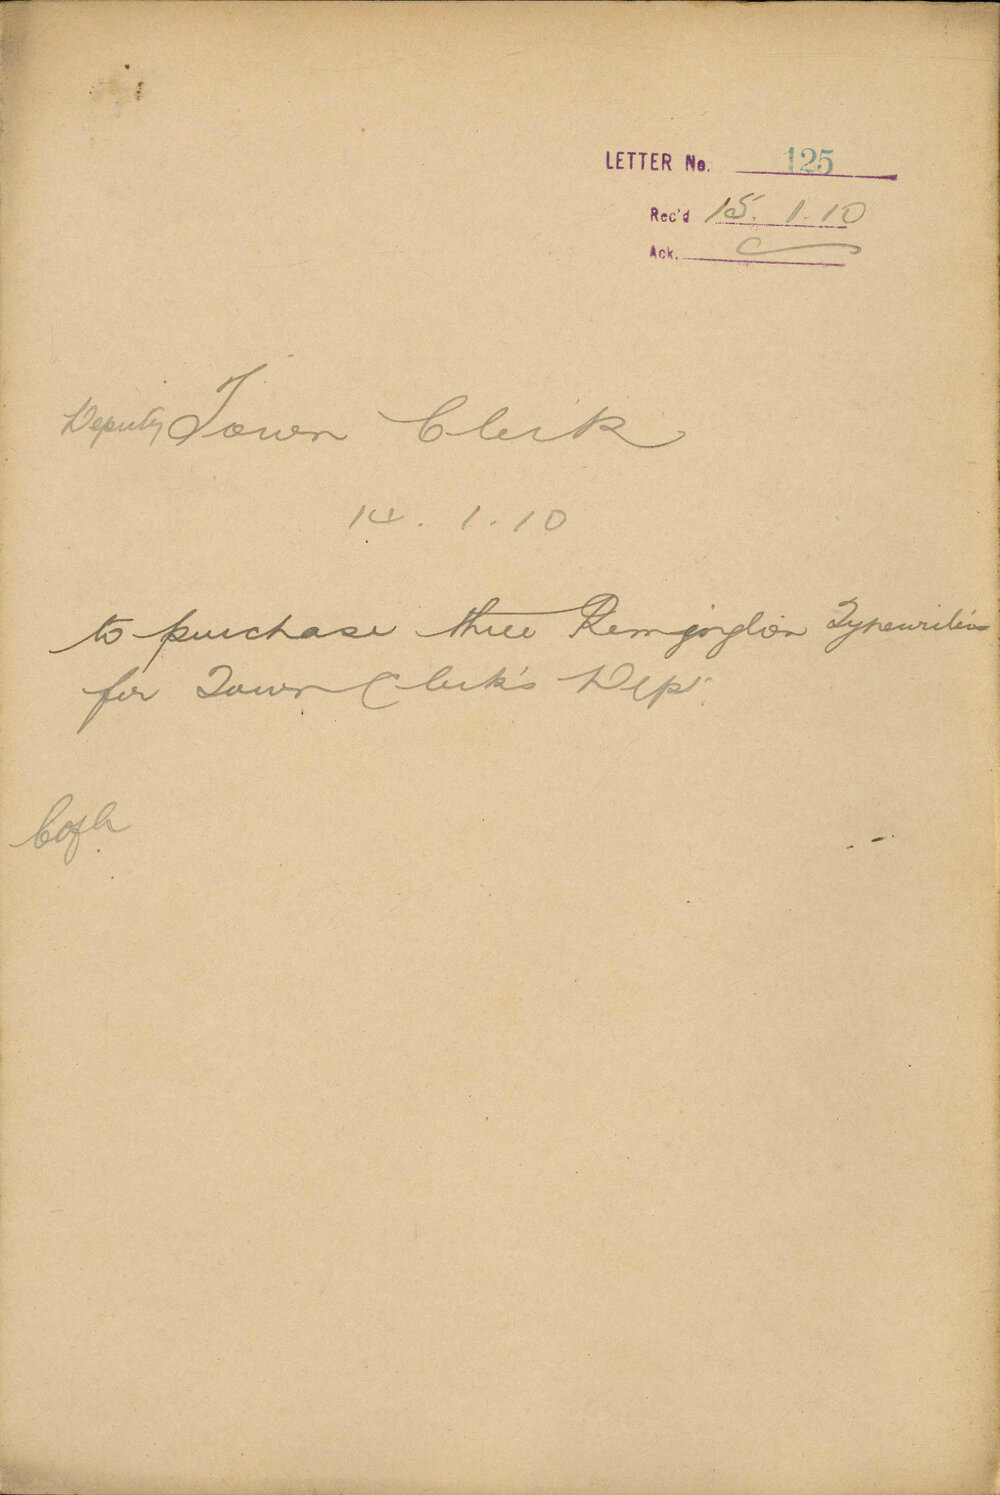 LETTER No. 125
Rec'd 15. 1. 10
Ack.
Deputy Town Clerk
14. 1. 10
to purchase three Remington Typewriters
for Town Clerk's Dept.